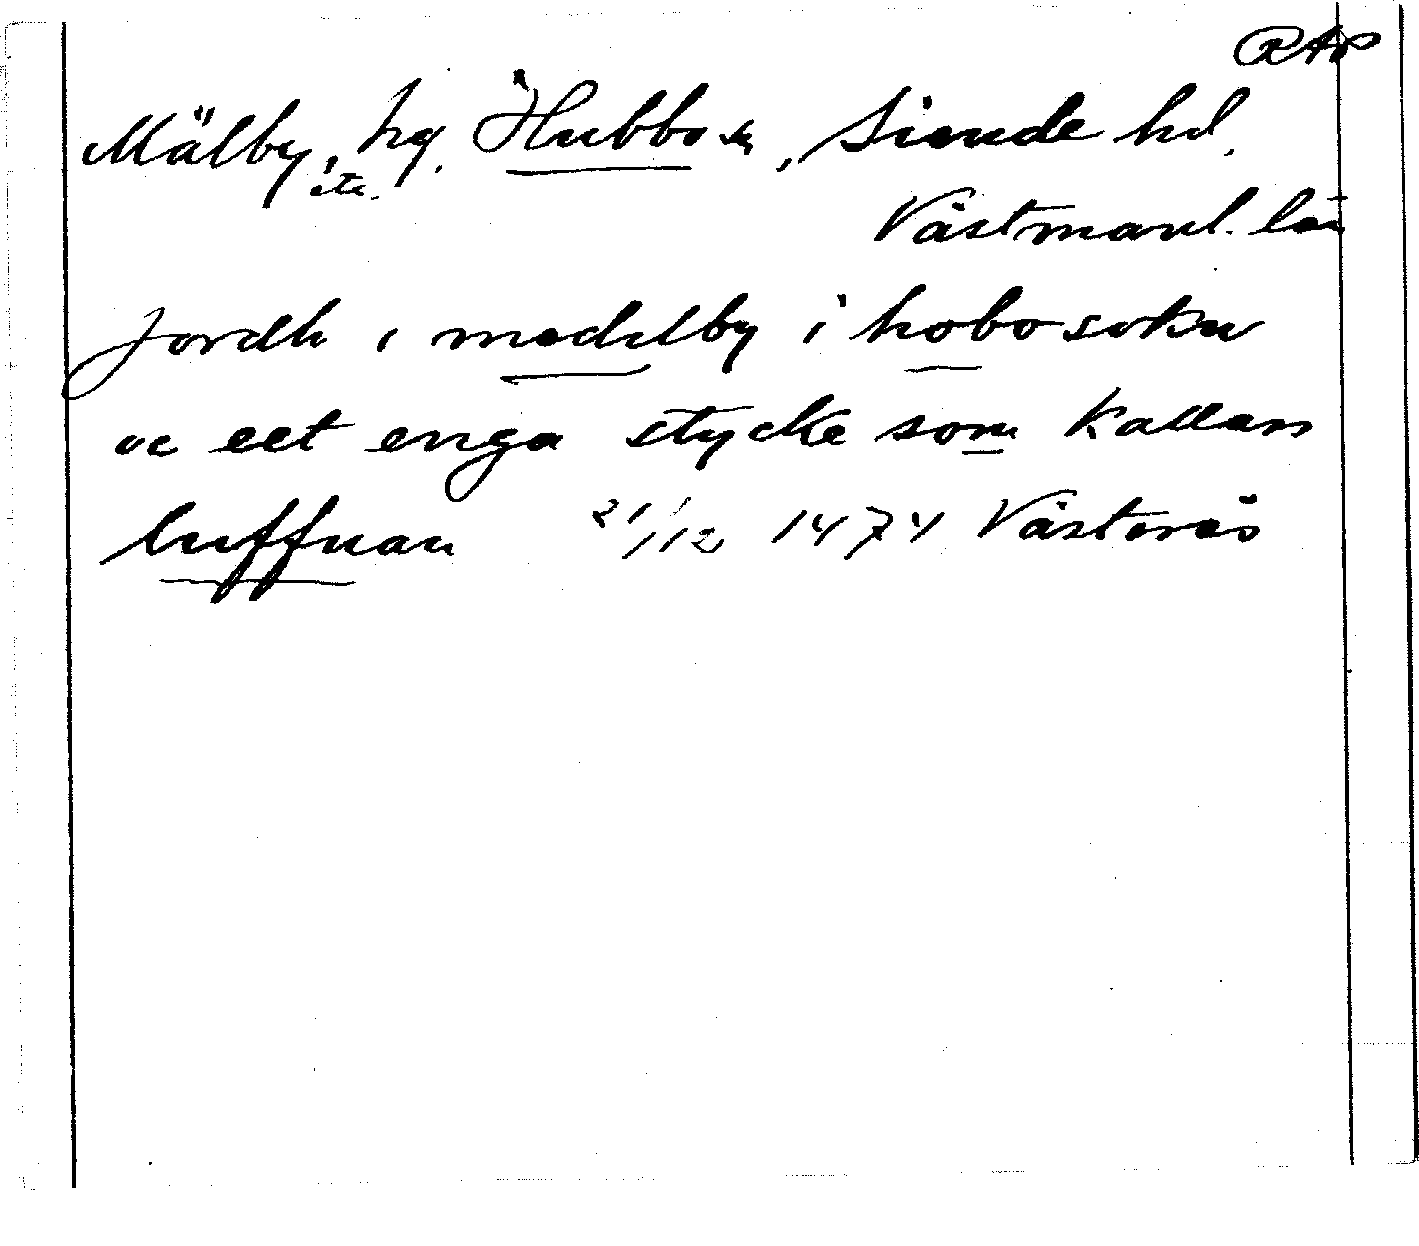 RAP
Mälby, hg. Hubbo sn, Siende hd.
etc.
Västmanl. län
Jordh i medelby i hobo sokn
oc eet enga stycke som kallas
luffnan 21/12 1474 Västerås